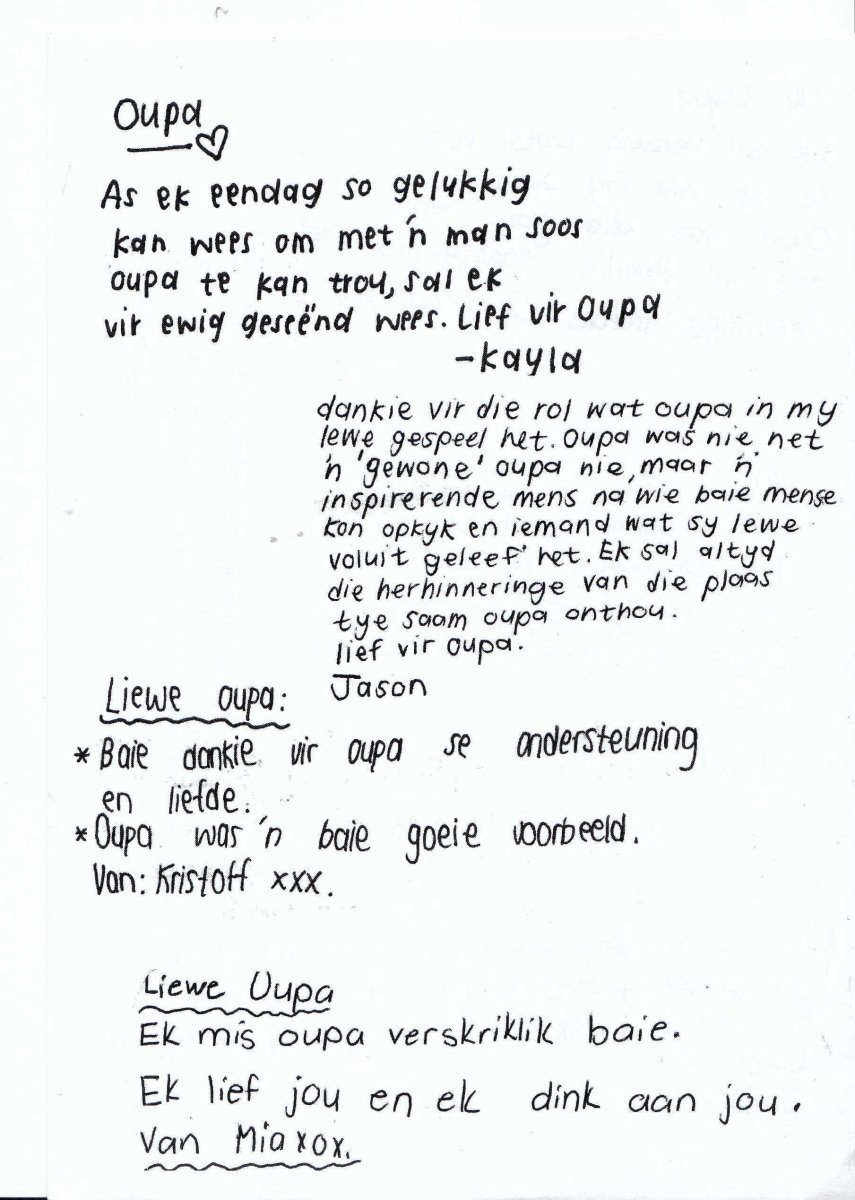 Oupa
As ek eendag so gelukkig
kan wees om met 'n man soos
oupa te kan trou, sal ek
vir ewig geseënd wees. Lief vir Oupa
- Kayla
dankie vir die rol wat oupa in my
lewe gespeel het. Oupa was nie net
'n 'gewone' oupa nie, maar 'n
inspirerende mens na wie baie mense
kon opkyk en iemand wat sy lewe
voluit geleef het. Ek sal altyd
die herhinneringe van die plaas
tye saam oupa onthou.
lief vir oupa.
Jason
Liewe oupa:
* Baie dankie vir oupa se ondersteuning
en liefde.
* Oupa was 'n baie goeie voorbeeld.
Van: Kristoff xxx.
Liewe Oupa
Ek mis oupa verskriklik baie.
Ek lief jou en ek dink aan jou.
Van Mia xox.